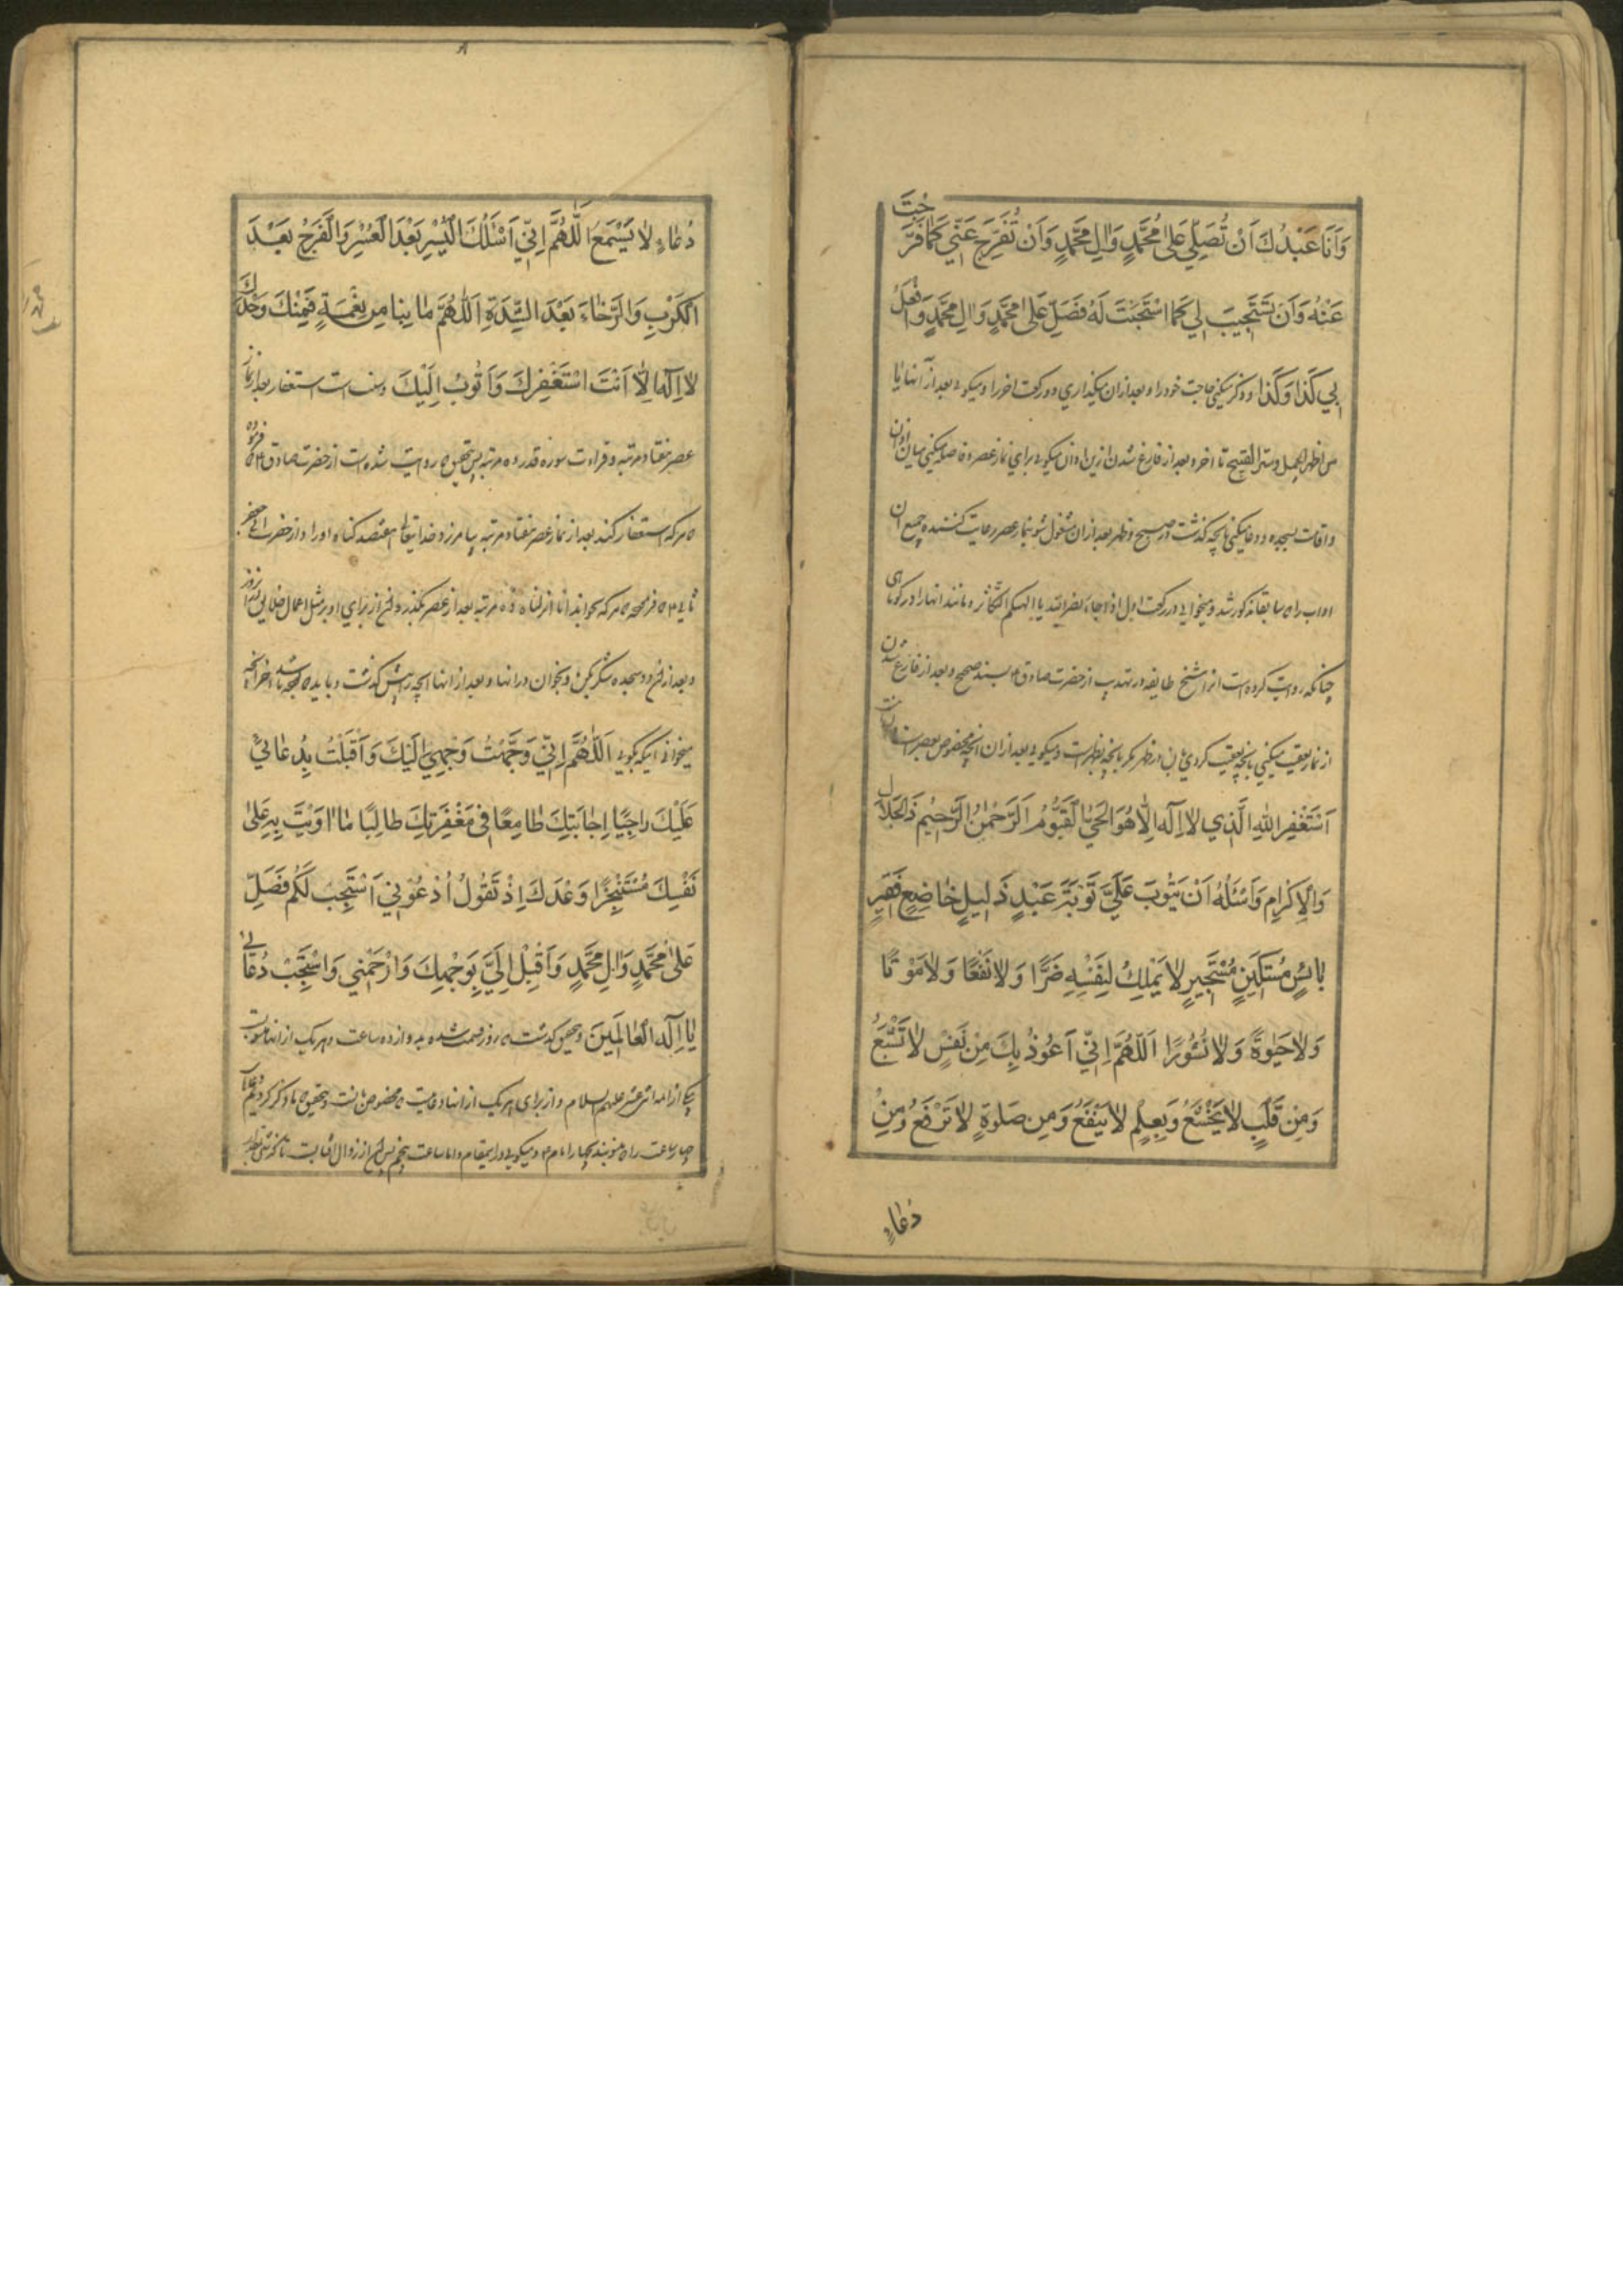 وَاَنَا عَبْدُكَ اَنْ تُصَلِّيَ عَلىٰ مُحَمَّدٍ وَاٰلِ مُحَمَّدٍ وَاَنْ تُفَرِّجَ عَنّي كَمٰا فَرَّجْتَ
عَنْهُ وَاَنْ تَسْتَجيبَ لي كَمَا اسْتَجَبْتَ لَهُ فَصَلِّ عَلىٰ مُحَمَّدٍ وَاٰلِ مُحَمَّدٍ وَافْعَلْ
بي كَذا وَكَذا و ذكر ميكني حاجت خود را و بعد از ان ميكذاري دو ركعت اخر را و ميكوئي بعد از آنها يا
من اظهر الجميل و ستر القبيح تا اخر و بعد از فارغ شدن از اين اذان ميكوئي براي نماز عصر و فاصله ميكني ميان اذان
و اقامت بسجده و دعا ميكني بانچه كذشت در صبح و ظهر بعد از ان مشغول شو بنماز عصر رعايت كننده جميع ان
اداب را كه سابقا مذكور شد و ميخواني در ركعت اول اذا جاء نصر الله يا الهيكم التكاثر و مانند انها را در كوتاهي
چنانكه روايت كرده است انرا شيخ طايفه در تهذيب از حضرت صادق ع بسند صحيح و بعد از فارغ شدن
از نماز تعقيب ميكني بانچه تعقيب كردي بان در ظهر مكر بانچه بظهر است و ميكوئي بعد از ان انچه مخصوص بعصر است
اَسْتَغْفِرُ اللّٰهَ الَّذي لاٰ اِلٰهَ اِلّاٰ هُوَ الْحَيُّ الْقَيُّومُ الرَّحْمٰنُ الرَّحيمُ ذَالْجَلاٰلِ
وَالْاِكْرٰامِ وَاَسْئَلُهُ اَنْ يَتُوبَ عَلَيَّ تَوْبَةَ عَبْدٍ ذَليلٍ خٰاضِعٍ فَقيرٍ
بٰائِسٍ مُسْتَكينٍ مُسْتَجيرٍ لاٰ يَمْلِكُ لِنَفْسِهِ ضَرًّا وَلاٰ نَفْعًا وَلاٰ مَوْتًا
وَلاٰ حَيٰوةً وَلاٰ نُشُورًا اَللّٰهُمَّ اِنّي اَعُوذُ بِكَ مِنْ نَفْسٍ لاٰ تَشْبَعُ
وَمِنْ قَلْبٍ لاٰ يَخْشَعُ وَبِعِلْمٍ لاٰ يَنْفَعُ وَمِن صَلوةٍ لاٰ تَرْفَعُ وَمِنْ
دُعٰاءٍ
دُعٰاءٍ لاٰ يَسْمَعُ اَللّٰهُمَّ اِنّي اَسْئَلُكَ الْيُسْرَ بَعْدَ الْعُسْرِ وَالْفَرَجَ بَعْدَ
الْكَرْبِ وَالرَّخٰاءَ بَعْدَ الشِّدَّةِ اَللّٰهُمَّ مٰا بِنٰا مِن نِعْمَةٍ فَمِنْكَ وَحْدَكَ
لاٰ اِلٰهَ اِلّاٰ اَنْتَ اسْتَغْفِرُكَ وَاَتُوبُ اِلَيْكَ و سنت است استغفار بعد از نماز
عصر هفتاد مرتبه و قراءت سوره قدر ده مرتبه پس بتحقيق كه روايت شده است از حضرت صادق ع كه فرموده
هر كه استغفار كند بعد از نماز عصر هفتاد مرتبه بيامرزد خدايتعالى هفتصد كناه او را و از حضرت ابي جعفر
ثاني ع كه فرمود هر كه بخواند انا انزلناه ده مرتبه بعد از عصر بكذرد از براي او بر مثل اعمال خلايق
و بعد از دو سجده شكر بكن و بخوان در انها و بعد از انها انچه پيش كذشت و بايد كه بوده باشد اخر انچه
ميخواني اينكه بكوئي اَللّٰهُمَّ اِنّي وَجَّهْتُ وَجْهي اِلَيْكَ وَاَقْبَلْتُ بِدُعٰائي
عَلَيْكَ رٰاجِيًا اِجٰابَتِكَ طٰامِعًا في مَغْفِرَتِكَ طٰالِبًا مٰا اوَيْتَ بِهِ عَلىٰ
نَفْسِكَ مُسْتَنْجِزًا وَعْدَكَ اِذْ تَقُولُ اُدْعُوني اَسْتَجِبْ لَكُم فَصَلِّ
عَلىٰ مُحَمَّدٍ وَاٰلِ مُحَمَّدٍ وَاَقْبِلْ اِلَيَّ بِوَجْهِكَ وَارْحَمْني وَاسْتَجِبْ دُعٰائي
يٰا اِلٰهَ الْعٰالَمينَ و بتحقيق كذشت كه روز قسمت شده به دوازده ساعت و هر يك از انها منسوب
بيكي از ائمه اثنى عشر عليهم السلام و از براي هر يك از انها دعائيست كه مخصوص بانست و بتحقيق كه ما ذكر كرديم
چهار ساعت را كه منسوبند بچهار امام ع و ميكوئيم در اينمقام و اما ساعت پنجم پس ان از زوال افتابست تا